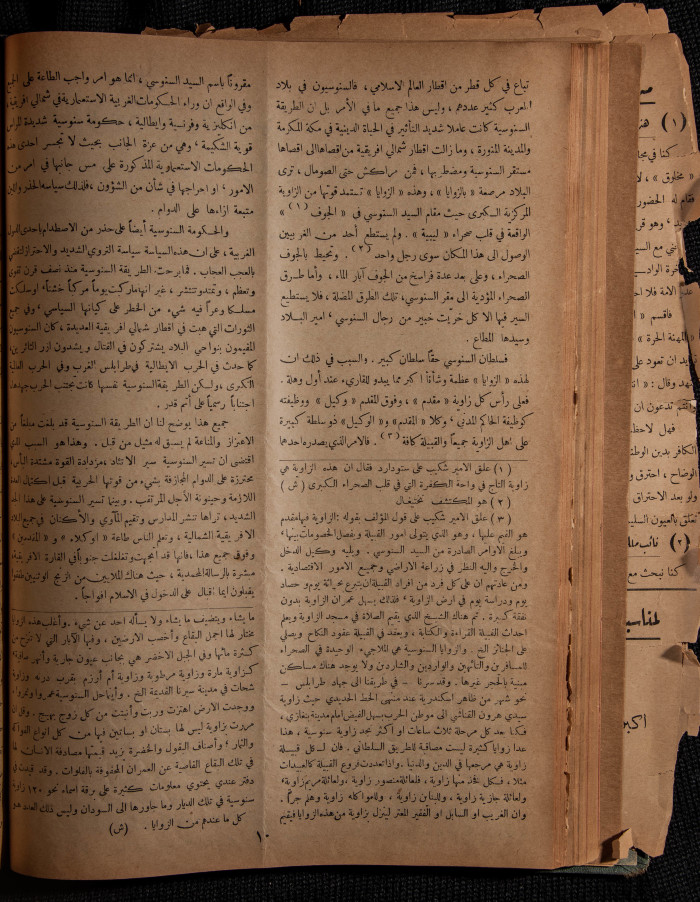 تباع في كل قطر من اقطار العالم الاسلامي ، فالسنوسيون في بلاد
المغرب كثير عددهم ، وليس هذا جميع ما في الأمر بل ان الطريقة
السنوسية كانت عاملا شديد التأثير في الحياة الدينية في مكة المكرمة
والمدينة المنورة ، وما زالت اقطار شمالي افريقية من اقصاها الى اقصاها
مستقر السنوسية ومضطربها ، فمن مراكش حتى الصومال ، ترى
البلاد مرصعة « بالزوايا » ، وهذه « الزوايا » تستمد قوتها من الزاوية
المركزية الكبرى حيث مقام السيد السنوسي في « الجوف (١) »
الواقعة في قلب صحراء « ليبية » . ولم يستطع أحد من الغربيين
الوصول الى هذا المكان سوى رجل واحد (٢) . وتحيط بالجوف
الصحراء ، وعلى بعد عدة فراسخ من الجوف آبار الماء ، وأما طرق
الصحراء المؤدية الى مقر السنوسي ، تلك الطرق المضلة ، فلا يستطيع
السير فيها الا كل خريت خبير من رجال السنوسي ، امير البلاد
وسيدها المطاع .
فسلطان السنوسي حقاً سلطان كبير . والسبب في ذلك ان
لهذه « الزوايا » عظمة وشأناً اكبر مما يبدو للقارىء عند أول وهلة .
فعلى رأس كل زاوية « مقدم » ، وفوق المقدم « وكيل » ووظيفته
كوظيفة الحاكم المدني ، وكلا « المقدم» و« الوكيل» ذو ساطة كبيرة
على اهل الزاوية جميعاً والقبيلة كافة (٣) . فالامر الذي يصدره احدهما
(١) علق الامير شكيب على ستودارد فقال ان هذه الزاوية هي
زاوية التاج في واحة الكفرة التي في قلب الصحراء الكبرى ( ش )
(٢) هو المكتشف نختيغال
(٣) علق الأمير شكيب على قول المؤلف بقوله : الزاوية فيها مقدم
هو القيم عليها ، وهو الذي يتولى امور القبيلة ويفصل الخصومات بينها ،
ويبلغ الاوامر الصادرة من السيد السنوسي . ويليه وكيل الدخل
والخرج واليه النظر في زراعة الاراضي وجميع الامور الاقتصادية .
ومن عادتهم ان على كل فرد من أفراد القبيلة ان يتبرع بحراثة يوم وحصاد
يوم ودراسة يوم في ارض الزاوية ، فلذلك يسهل عمران الزاوية بدون
نفقة كبيرة . ثم هناك الشيخ الذي يقيم الصلاة في مسجد الزاوية ويعلم
احداث القبيلة القراءة والكتابة ، ويعقد في القبيلة عقود النكاح ويصلي
على الجنائز الخ . والزوايا السنوسية هي الملاجىء الوحيدة في الصحراء
للمسافرين والتائهين والواردين والشاردين ولا يوجد هناك مساكن
مبنية بالحجر غيرها . وقد سرنا في طريقنا الى جهاد طرابلس
نحو شهر من ظاهر اسكندرية عند منتهى الخط الحديدي حيث زاوية
سيدي هرون القناشي الى موطن الحرب بسهل الفيض امام مدينة بنغازي ،
فكنا نجد كل مرحلة ثلاث ساعات او اكثر نجد زاوية سنوسية ، هذا
عدا زوايا كثيرة ليست مصاقبة للطريق السلطاني . فان لكل قبيلة
زاوية هي مرجعها في الدين والدنيا . واذا تعددت فروع القبيلة كالعبيدات
مثلا ، فلكل فخذ منها زاوية ، فلعائلة منصور زاوية ، ولعائلة مريم زاوية ،
ولعائلة جازية زاوية ، وللبنابن زاوية ، وللعواكله زاوية وهلم جراً .
وان الغريب او السابل او الفقير المعتر لينزل بزاوية من هذه الزوايا فيقيم
مقروناً باسم السيد السنوسي ، انما هو امر واجب الطاعة على
وفي الواقع ان وراء الحكومات الغربية الاستعمارية في شمالي
من انكليزية وفرنسية وايطالية ، حكومة سنوسية شديدة
قوية الشكيمة ، وهي من عزة الجانب بحيث لا تجسر احدى
الحكومات الاستعمارية المذكورة على مس جانبها في امر من
الامور ، او احراجها في شأن من الشؤون ، فلذلك سياسة الحذر
متبعة ازاءها على الدوام .
والحكومة السنوسية أيضاً على حذر من الاصطدام باحدى
الغربية ، على ان هذه السياسة سياسة التروي الشديد والاحتراز
بالعجب العجاب . فما برحت الطريقة السنوسية منذ نصف قرن
وتعظم ، وتمتد وتنتشر ، غير انها ما ركبت يوماً مركباً خشناً ، او سلكت
مسلكاً وعراً فيه شيء من الخطر على كيانها السياسي ، وفي جميع
الثورات التي هبت في اقطار شمالي افريقية العديدة ، كان السنوسيون
المقيمون بنواحي البلاد يشتركون في القتال ويشدون ازر الثائرين
كما حدث في الحرب الايطالية في طرابلس الغرب وفي الحرب
الكبرى ، ولكن الطريقة السنوسية نفسها كانت تجتنب الحرب
اجتناباً رسمياً على أتم قدر .
جميع هذا يوضح لنا ان الطريقة السنوسية قد بلغت مبلغاً من
الاعتزاز والمناعة لم يسبق له مثيل من قبل . وهذا هو السبب الذي
اقتضى ان تسير السنوسية سير الاتئاد ، مزدادة القوة مشتدة البأس ،
محترزة على الدوام المجازفة بشيء من قوتها الحربية قبل اكتمال
اللازمة وحينونة الأجل المرتقب . وبينما تسير السنوسية على هذا
الشديد ، تراها تنشر المدارس وتقيم المآوي والأكنان في جميع
الافريقية الشمالية ، وتعلم الناس طاعة « الوكلاء » و« المقدمين »
وفوق جميع هذا ، فانها قد اتجهت وتغلغلت جنوباً في القارة الافريقية
مبشرة بالرسالة المحمدية ، حيث هناك الملايين من الزنج الوثنيين
يقبلون ايما اقبال على الدخول في الاسلام افواجاً .
ما يشاء ويتضيف ما يشاء ولا يسأله احد عن شيء . وأغلب هذه
مختار لها اجمل البقاع وأخصب الارضين ، وفيها الآبار التي لا
كثرة مائها وفي الجبل الاخضر هي بجانب عيون جارية وأنهر
كزاوية مارة وزاوية مرطوبة وزاوية أم أرزم بقرب درنة وزاوية
شحات في مدينة سيرنا القديمة الخ . وأينما حل السنوسية عمروا
ووجدت الارض اهتزت وربت وأنبتت من كل زوج بهيج .
مررت بزاوية ليس لها بستان او بساتين فيها من كل انواع الفواكه
والثمار ، وأصناف البقول والخضرة يزيد قيمتها مصادفة الانسان
في تلك البقاع القاصية عن العمران المحفوفة بالفلوات . وقد
دفتر عندي يحتوي معلومات كثيرة على برقة اسماء نحو ١٢٠
سنوسية في تلك الديار وما جاورها الى السودان وليس ذلك العدد هو
كل ما عندهم من الزوايا . (ش)
١٠
(١)
كنا في
« مخلوق »
فقام له الحضور
فاقسم
« المهنة الحرة »
(٢)
كنا نبحث مع